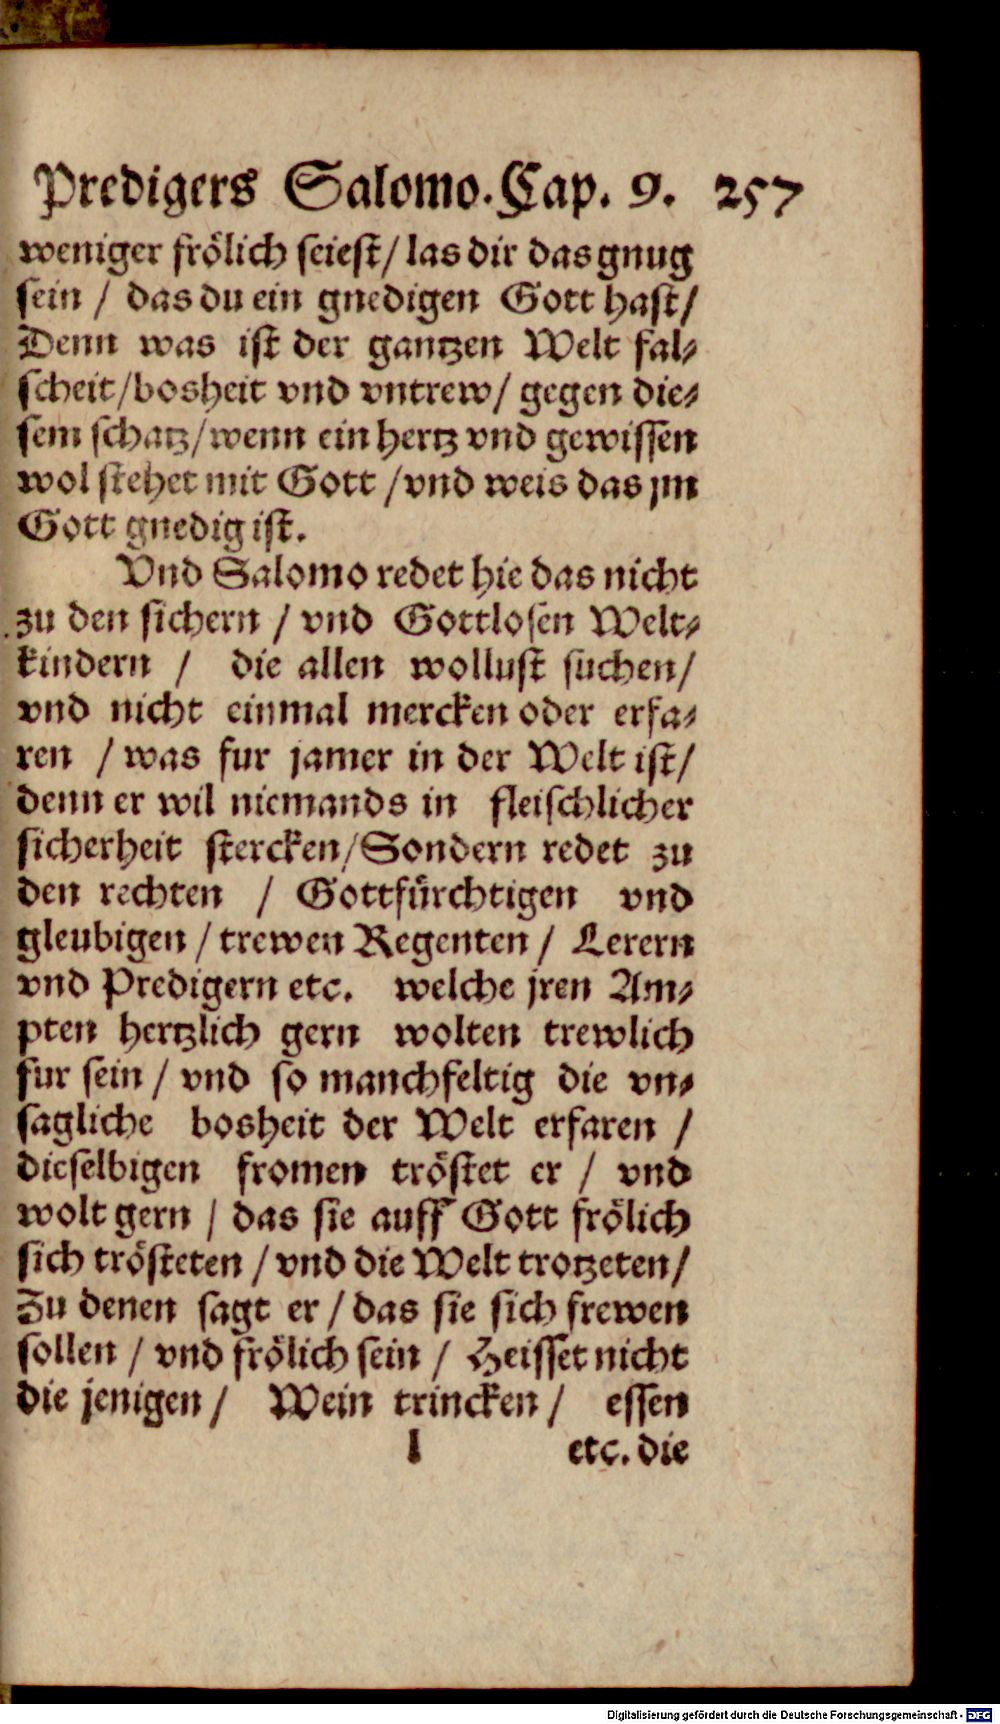 Predigers Salomo. Cap. 9. 257
weniger frölich seiest/ las dir das gnug
sein / das du ein gnedigen Gott hast/
Denn was ist der gantzen Welt fal-
scheit/bosheit vnd vntrew/ gegen die-
sem schatz/wenn ein hertz vnd gewissen
wol stehet mit Gott /vnd weis das jm
Gott gnedig ist.
Vnd Salomo redet hie das nicht
zu den sichern / vnd Gottlosen Welt-
kindern / die allen wollust suchen/
vnd nicht einmal mercken oder erfa-
ren / was fur jamer in der Welt ist/
denn er wil niemands in fleischlicher
sicherheit stercken/Sondern redet zu
den rechten / Gottfürchtigen vnd
gleubigen / trewen Regenten / Lerern
vnd Predigern etc. welche jren Am-
pten hertzlich gern wolten trewlich
fur sein / vnd so manchfeltig die vn-
sagliche bosheit der Welt erfaren /
dieselbigen fromen tröstet er / vnd
wolt gern / das sie auff Gott frölich
sich trösteten / vnd die Welt trotzeten/
Zu denen sagt er / das sie sich frewen
sollen / vnd frölich sein / Heisset nicht
die jenigen / Wein trincken / essen
l etc. die
Digitalisierung gefördert durch die Deutsche Forschungsgemeinschaft - DFG